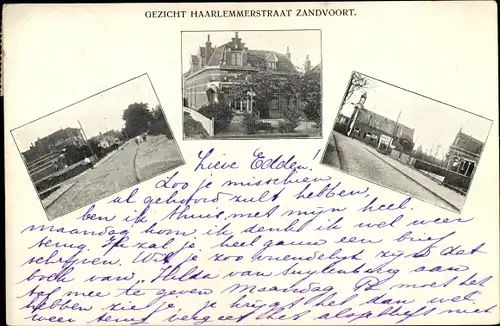 GEZICHT HAARLEMMERSTRAAT ZANDVOORT.
Lieve Edden!
Zoo je misschien
al gehoord zult hebben,
ben ik thuis met mijn heel
maandag kom ik denk ik wel weer
terug. Ik zal je heel gauw een brief
schrijven. Wil je zoo vriendelijk zijn dat
boek van Hilda van Suylenburg aan
te mee te geven Maandag moet het
hebben zie je je krijgt het dan wel
weer terug vergeet het alsjeblieft niet